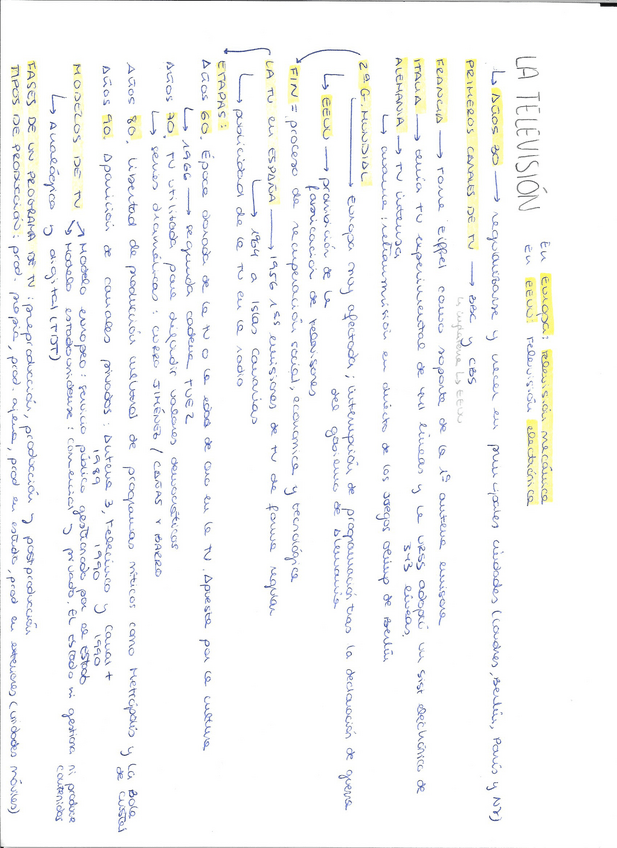 LA TELEVISIÓN
En Europa: televisión mecánica
En EEUU: televisión electrónica
↳ AÑOS 30 → regularizarse y nacer en principales ciudades (Londres, Berlín, París y NY)
PRIMEROS CANALES DE TV → BBC y CBS
Inglaterra los EEUU
FRANCIA → Torre Eiffel como soporte de la 1º antena emisora
ITALIA → tenía TV experimental de 441 líneas y la URSS adoptó un sist electrónico de 343 líneas.
ALEMANIA → TV intensa
↳ avance: retransmisión en directo de los Juegos Olimp de Berlín
2ª G. MUNDIAL
→ Europa muy afectada, interrupción de programación tras la declaración de guerra
↳ EEUU → prohibición de la fabricación de televisores del gobierno de Alemania
FIN = proceso de recuperación social, económica y tecnológica
LA TV EN ESPAÑA → 1956 1ªs emisiones de TV de forma regular
↳ 1964 a Islas Canarias
↳ publicidad de la TV en la radio
ETAPAS:
AÑOS 60. Época dorada de la TV o la edad de oro en la TV. Apuesta por la cultura
↳ 1966 → segunda cadena TVE2
AÑOS 70. TV utilizada para difundir valores democráticos
↳ series dramáticas: CURRO JIMÉNEZ / CAÑAS Y BARRO
AÑOS 80. Libertad de producción cultural de programas míticos como Metrópolis y La Bola de cristal
AÑOS 90. Aparición de canales privados: Antena 3, Telecinco y Canal +
1989 1990 1990
MODELOS DE TV → Modelo europeo: servicio público gestionado por el estado
↘ Modelo estadounidense: comercial y privado. El estado ni gestiona ni produce contenidos
↳ Analógico y digital (TDT)
FASES DE UN PROGRAMA DE TV: preproducción, producción y postproducción
TIPOS DE PRODUCCIÓN: prod. propia, prod. ajena, prod en estudio, prod en exteriores (unidades móviles)